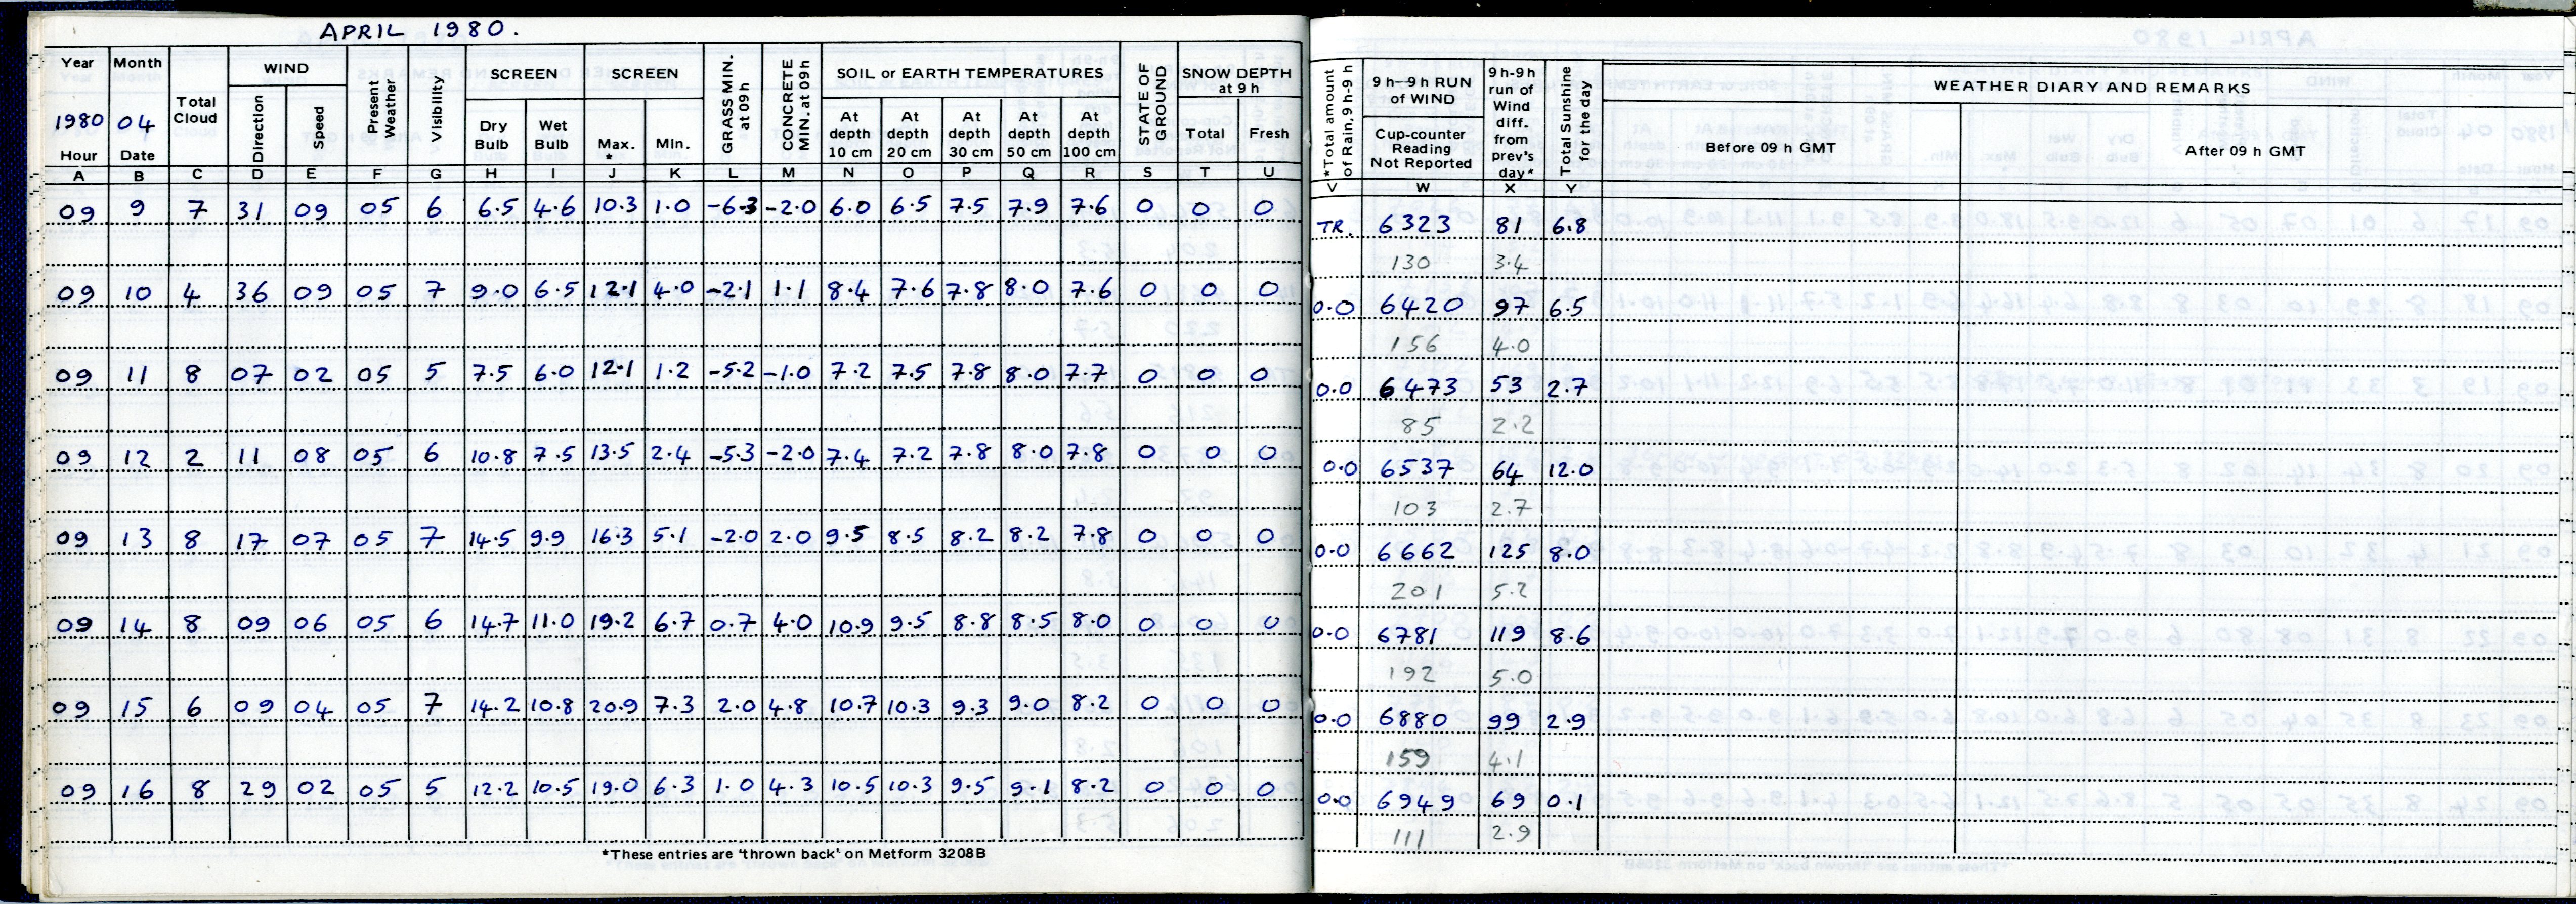 APRIL 1980.
Year Month Total Cloud WIND Present Weather Visibility SCREEN SCREEN GRASS MIN. at 09h CONCRETE MIN. at 09h SOIL or EARTH TEMPERATURES STATE OF GROUND SNOW DEPTH at 9 h *Total amount of Rain, 9 h-9 h 9 h–9 h RUN of WIND 9 h-9 h run of Wind diff. from prev's day* Total Sunshine for the day WEATHER DIARY AND REMARKS
1980 04 Direction Speed Dry Bulb Wet Bulb Max. * Min. At depth 10 cm At depth 20 cm At depth 30 cm At depth 50 cm At depth 100 cm Total Fresh Cup-counter Reading Not Reported Before 09 h GMT After 09 h GMT
Hour Date
A B C D E F G H I J K L M N O P Q R S T U V W X Y
09 9 7 31 09 05 6 6.5 4.6 10.3 1.0 -6.3 -2.0 6.0 6.5 7.5 7.9 7.6 0 0 0 TR. 6323 81 6.8
130 3.4
09 10 4 36 09 05 7 9.0 6.5 12.1 4.0 -2.1 1.1 8.4 7.6 7.8 8.0 7.6 0 0 0 0.0 6420 97 6.5
156 4.0
09 11 8 07 02 05 5 7.5 6.0 12.1 1.2 -5.2 -1.0 7.2 7.5 7.8 8.0 7.7 0 0 0 0.0 6473 53 2.7
85 2.2
09 12 2 11 08 05 6 10.8 7.5 13.5 2.4 -5.3 -2.0 7.4 7.2 7.8 8.0 7.8 0 0 0 0.0 6537 64 12.0
103 2.7
09 13 8 17 07 05 7 14.5 9.9 16.3 5.1 -2.0 2.0 9.5 8.5 8.2 8.2 7.8 0 0 0 0.0 6662 125 8.0
201 5.2
09 14 8 09 06 05 6 14.7 11.0 19.2 6.7 0.7 4.0 10.9 9.5 8.8 8.5 8.0 0 0 0 0.0 6781 119 8.6
192 5.0
09 15 6 09 04 05 7 14.2 10.8 20.9 7.3 2.0 4.8 10.7 10.3 9.3 9.0 8.2 0 0 0 0.0 6880 99 2.9
159 4.1
09 16 8 29 02 05 5 12.2 10.5 19.0 6.3 1.0 4.3 10.5 10.3 9.5 9.1 8.2 0 0 0 0.0 6949 69 0.1
111 2.9
*These entries are 'thrown back' on Metform 3208B